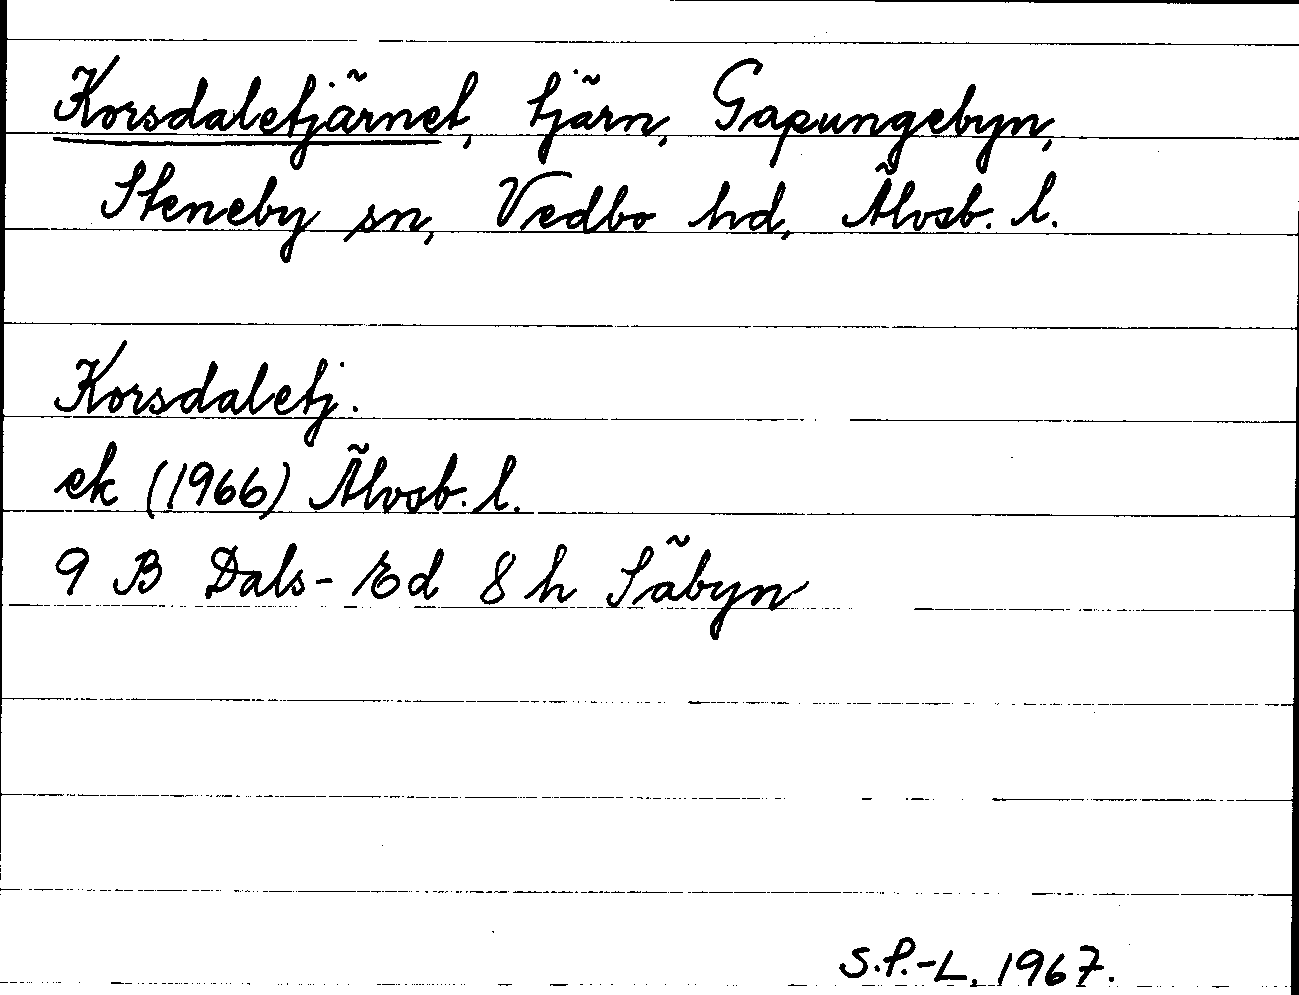 Korsdaletjärnet, tjärn, Gapungebyn,
Steneby sn, Vedbo hd, Älvsb. l.
Korsdaletj.
ek (1966) Älvsb. l.
9 B Dals-Ed 8 h Säbyn
S.P.-L, 1967.